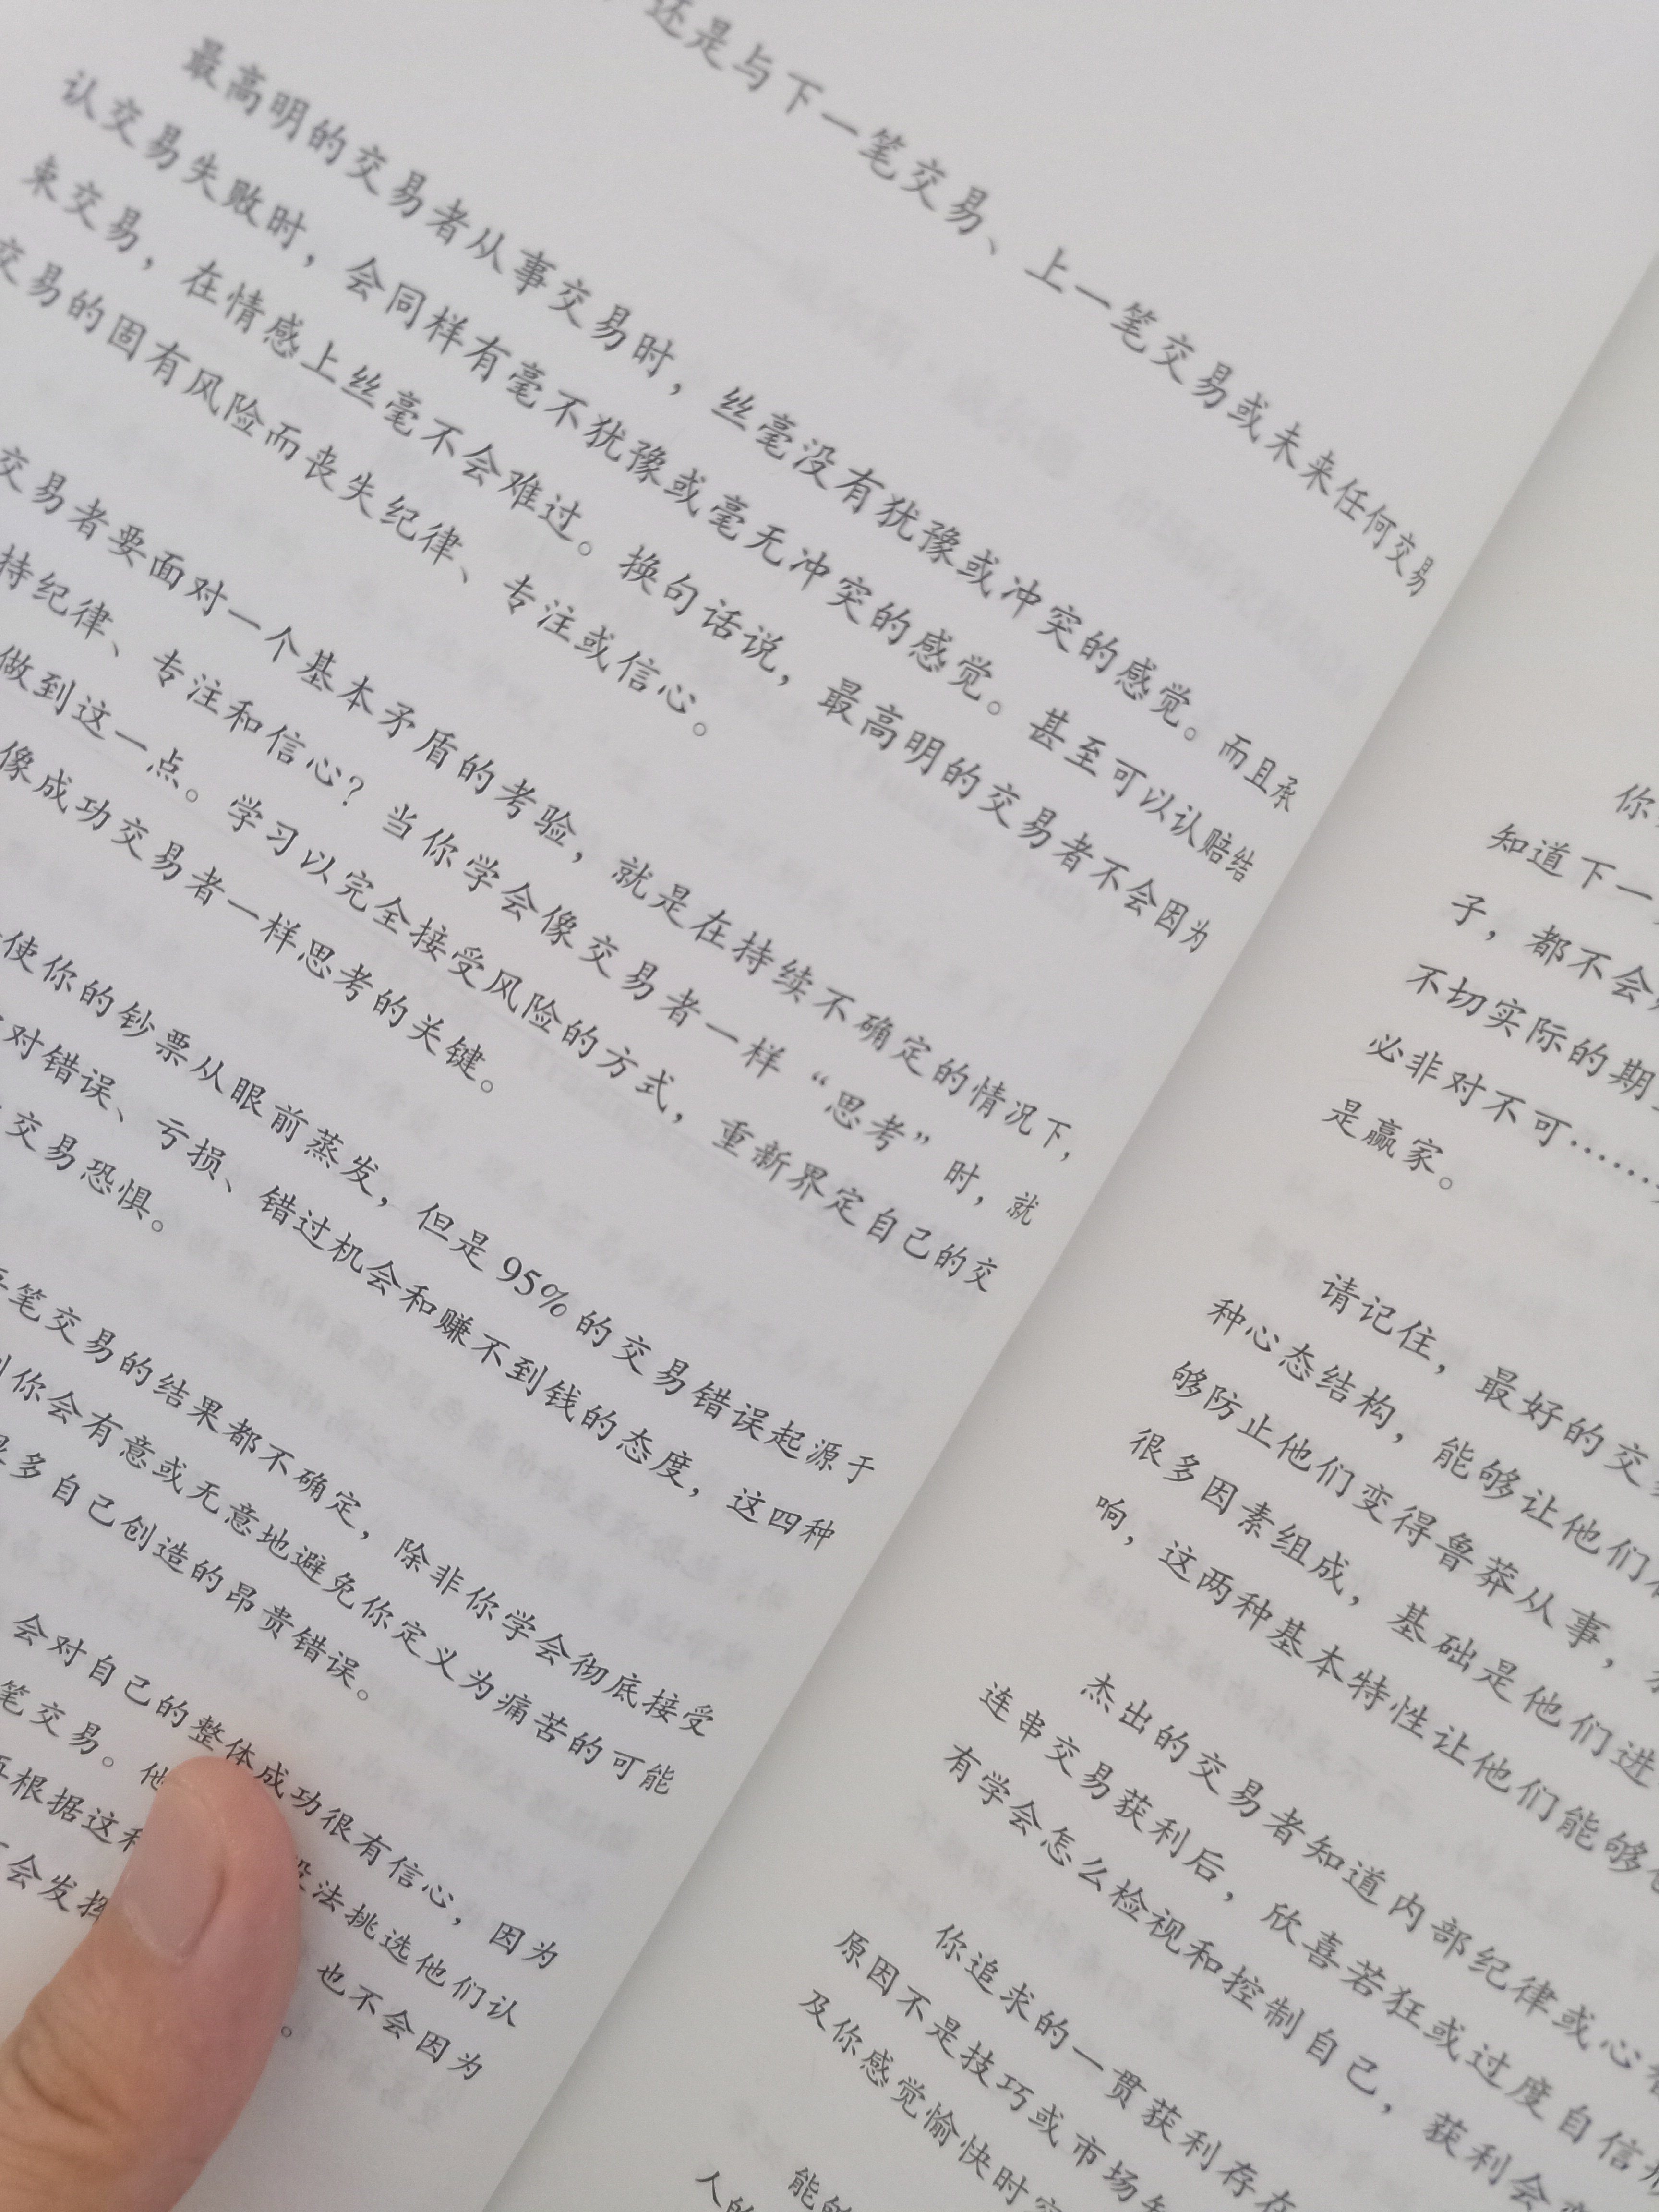 还是与下一笔交易、上一笔交易或未来任何交易
最高明的交易者从事交易时，丝毫没有犹豫或冲突的感觉。而且承
认交易失败时，会同样有毫不犹豫或毫无冲突的感觉。甚至可以认赔结
束交易，在情感上丝毫不会难过。换句话说，最高明的交易者不会因为
交易的固有风险而丧失纪律、专注或信心。
交易者要面对一个基本矛盾的考验，就是在持续不确定的情况下，
持纪律、专注和信心？当你学会像交易者一样“思考”时，就
做到这一点。学习以完全接受风险的方式，重新界定自己的交
像成功交易者一样思考的关键。
使你的钞票从眼前蒸发，但是95%的交易错误起源于
对错误、亏损、错过机会和赚不到钱的态度，这四种
交易恐惧。
笔交易的结果都不确定，除非你学会彻底接受
你会有意或无意地避免你定义为痛苦的可能
多自己创造的昂贵错误。
会对自己的整体成功很有信心，因为
笔交易。他 没法挑选他们认
根据这 也不会因为
会发挥 。
你
知道下一
子，都不会
不切实际的期
必非对不可……
是赢家。
请记住，最好的交
种心态结构，能够让他们
够防止他们变得鲁莽从事，
很多因素组成，基础是他们进
响，这两种基本特性让他们能够
杰出的交易者知道内部纪律或心
连串交易获利后，欣喜若狂或过度自信
有学会怎么检视和控制自己，获利会
你追求的一贯获利存在
原因不是技巧或市场
及你感觉愉快时
能
人的